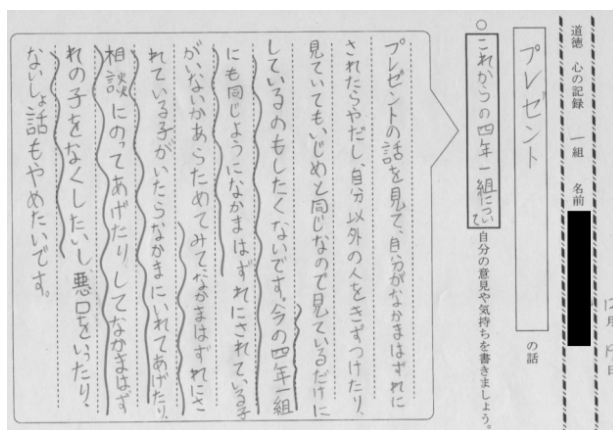 道徳 心の記録 一組 名前
12月15日
プレゼント の話
○これからの四年一組について自分の意見や気持ちを書きましょう。
プレゼントの話を見て、自分がなかまはずれに
されたらやだし、自分以外の人をきずつけたり、
見ていてもいじめと同じなので見ているだけに
しているのもしたくないです。今の四年一組
にも同じようになかまはずれにされている子
が、いないかあらためてみてなかまはずれにさ
れている子がいたらなかまにいれてあげたり、
相談にのってあげたりしてなかまはず
れの子をなくしたいし、悪口をいったり、
ないしょ話もやめたいです。